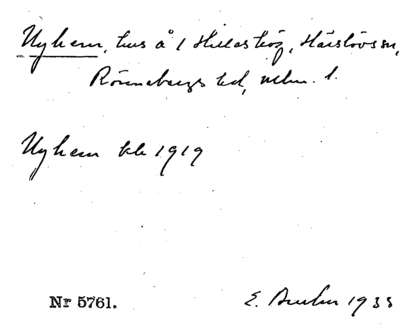 Nyhem, hus å 1 Hilleshög, Härslövs sn,
Rönnebergs hd, Mlm. l.
Nyhem kb 1919
Nr 5761.
E. 1935